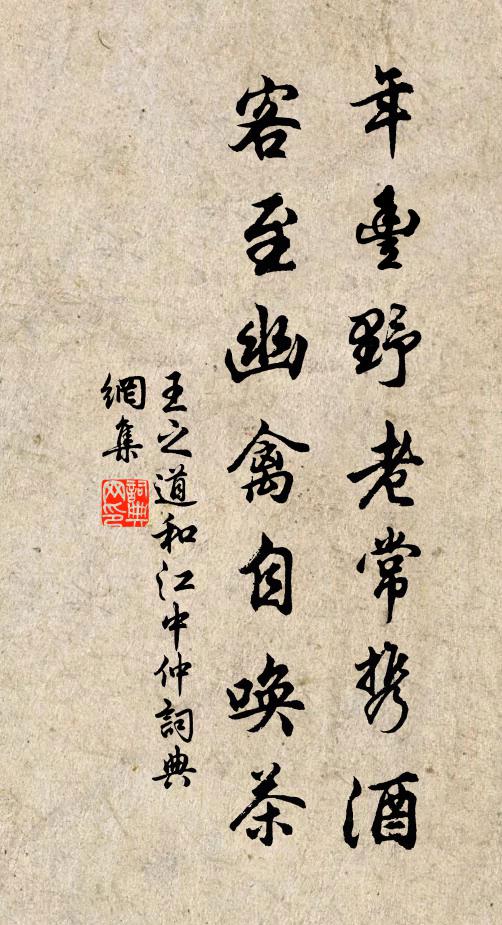 年豊野老常携酒
客至幽禽自唤茶
王之道和江中仲詞典
網集
詞典
网印